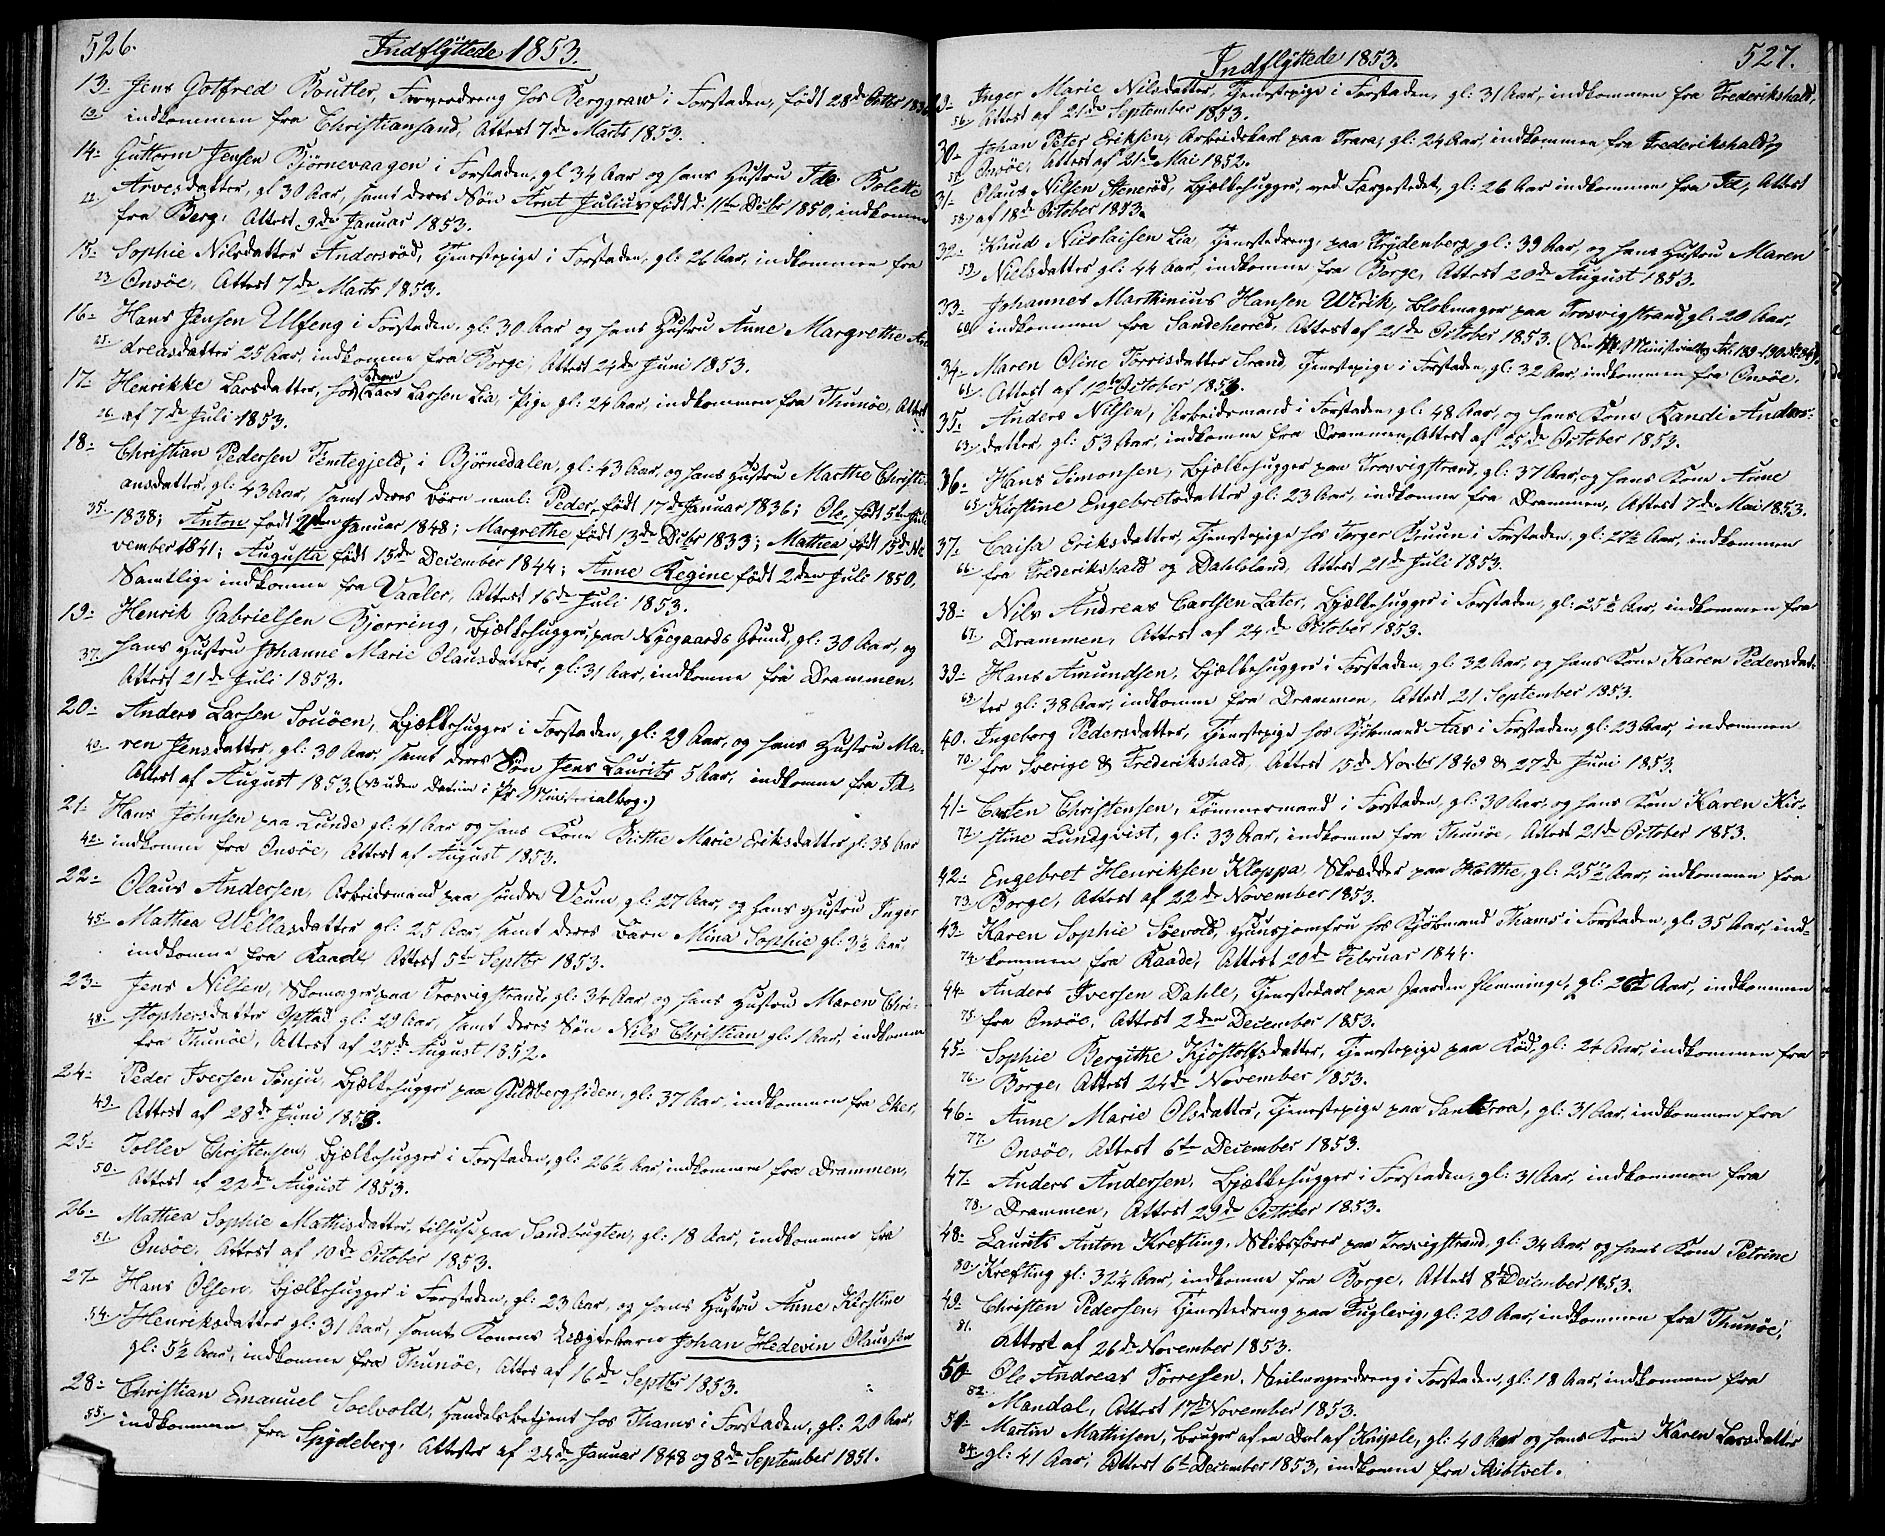 526.
Indflyttede 1853.
13. Jens Gotfred Boutler, Farverdreng hos Berggraw i Forstaden, født 28de
19. indkommen fra Christiansand, Attest 7de Marts 1853.
14. Guttorm Jensen Bjørnevaagen i Forstaden, gl 34 Aar og hans Hustru Ide Bolette
Arvesdatter, gl 30 Aar, samt deres Søn Arnt Julius født d: 11te Decbr 1850, indkomne
22. fra Berg, Attest 9de Januar 1853.
15. Sophie Nilsdatter Andersrød, Tjenestepige i Forstaden, gl: 26 Aar, indkommen fra
23. Onsøe, Attest 7de Marts 1853.
16. Hans Jensen Ulfeng i Forstaden, gl: 30 Aar og hans Hustru Anne Margrethe An-
25. dreasdatter 25 Aar, indkomne fra Borge, Attest 24de Juni 1853.
17. Henrikke Larsdatter, hos Lars Larsen Lia, Pige gl: 24 Aar, indkommen fra Thunøe, Attest
26. af 7de Juli 1853.
18. Christian Pedersen Tentegjeld, i Bjørnedalen, gl: 43 Aar, og hans Hustru Marthe Christi-
ansdatter, gl: 43 Aar, samt deres Børn neml: Peder, født 17de Januar 1836; Ole, født 5te Juli
35. 1838; Anton født 2den Januar 1848; Margrethe, født 13de Decbr 1833; Mathea født 15de No-
vember 1841; Augusta født 15de December 1844; Anne Regine født 2den Juli 1850,
Samtlige indkomne fra Vaaler, Attest 16de Juli 1853.
19. Henrik Gabrielsen Bjerring, Bjælkehugger, paa Nygaards Grund, gl: 30 Aar, og
37. hans Hustru Johanne Marie Olausdatter, gl: 31 Aar, indkomne fra Drammen,
Attest 21de Juli 1853.
20. Anders Larsen Souøen, Bjælkehugger i Forstaden, gl: 29 Aar, og hans Hustru Ma-
40. ren Jensdatter, gl: 30 Aar, samt deres Søn Jens Laurits 5 Aar, indkomne fra Id,
Attest af August 1853 (uden Datum i Ministerialbog.)
21. Hans Johnsen paa Lunde gl: 41 Aar og hans Kone Birthe Marie Eriksdatter gl: 38 Aar
42. indkomne fra Onsøe, Attest af August 1853.
22. Olaus Andersen, Arbeidsmand paa søndre Veum, gl: 27 Aar, og hans Hustru Inger
45. Mathea Wellasdatter gl: 25 Aar samt deres Barn Mina Sophie gl: 3½ Aar
indkomne fra Raade, Attest 5te Septbr 1853.
23. Jens Nilsen, Skomager, paa Trosvigstrand, gl: 34 Aar og hans Hustru Maren Chri-
48. stophersdatter Opstad gl: 29 Aar, samt deres Søn Nils Christian gl: 1 Aar, indkomne
fra Thunøe, Attest af 25de August 1852.
24. Peder Iversen Sønju, Bjælkehugger paa Guldbergsiden, gl: 37 Aar, indkommen fra Eker,
49. Attest af 28de Juni 1853.
25. Tollev Christensen, Bjælkehugger i Forstaden, gl: 26½ Aar, indkommen fra Drammen,
50. Attest af 22de August 1853.
26. Mathea Sophie Mathisdatter, tilhuse paa Sandbugten, gl: 18 Aar, indkommen fra
51. Onsøe, Attest af 10de October 1853.
27. Hans Olsen, Bjælkehugger i Forstaden, gl: 23 Aar, og hans Hustru Anne Kirstine
54. Henriksdatter gl: 31 Aar, samt Konens Uægtebarn Johan Hedevin Olaussen
gl: 5½ Aar, indkomne fra Thunøe, Attest af 16de Septbr 1853.
28. Christian Emanuel Soelvold, Handelsbetjent hos Thams i Forstaden, gl: 20 Aar,
55. indkommen fra Spydeberg, Attester af 24de Januar 1848 og 8de September 1851.
Indflyttede 1853.
527.
29. Inger Marie Nilsdatter, Tjenestepige i Forstaden, gl: 31 Aar, indkommen fra Frederikshald,
56. Attest af 21de September 1853.
30. Johan Peter Eriksen, Arbeidskarl paa Trara, gl: 24 Aar, indkommen fra Frederikshald og
57. Onsøe, Attest af 21de Mai 1852.
31. Olaus Nilsen Stenerød, Bjælkehugger, ved Færgestedet, gl: 26 Aar indkommen fra Id, Attest
58. af 18de October 1853.
32. Knud Nicolaisen Lia, Tjenestedreng, paa Frydenberg gl: 39 Aar, og hans Hustru Maren
59. Nielsdatter gl: 44 Aar, indkomne fra Borge, Attest 20de August 1853.
33. Johannes Marthinius Hansen Wirik, Blokmager paa Trosvigstrand, gl: 20 Aar,
60. indkommen fra Sandeherred, Attest af 21de October 1853. (See Ministerialbog
34. Maren Oline Torrisdatter Sand, Tjenestepige i Forstaden, gl: 32 Aar, indkommen fra Onsøe,
61. Attest af 12te October 1853.
35. Anders Nilsen, Arbeidsmand i Forstaden, gl: 48 Aar, og hans Kone Randi Anders-
63. datter, gl: 53 Aar, indkomne fra Drammen, Attest af 25de October 1853.
36. Hans Simonsen, Bjælkehugger paa Trosvigstrand, gl: 37 Aar, og hans Kone Anne
65. Kirstine Engebretsdatter gl: 23 Aar, indkomne fra Drammen, Attest 7de Mai 1853.
37. Caisa Eriksdatter, Tjenestepige hos Torger Bruun i Forstaden, gl: 27½ Aar, indkommen
66. fra Frederikshald og Dahlsland, Attest 21de Juli 1853.
38. Nils Andreas Carlsen Later, Bjælkehugger i Forstaden, gl: 25½ Aar, indkommen fra
67. Drammen, Attest af 24de October 1853.
39. Hans Amundsen, Bjælkehugger i Forstaden, gl: 32 Aar, og hans Kone Karen Pedersdat-
69. ter gl: 38 Aar, indkomne fra Drammen, Attest 21 September 1853.
40. Ingeborg Pedersdatter, Tjenestepige hos Kjøbmand Aas i Forstaden, gl: 23 Aar, indkommen
70. fra Sverige & Frederikshald, Attest 15de Novbr 1849 & 27de Juni 1853.
41. Carsten Christensen, Tømmermand i Forstaden, gl: 30 Aar, og hans Kone Karen Kir-
72. stine Lundqvist, gl: 33 Aar, indkomne fra Thunøe, Attest 21de October 1853.
42. Engebret Henriksen Kloppa Skrædder paa Holthe, gl: 25½ Aar, indkommen fra
73. Borge, Attest af 22de November 1853.
43. Karen Sophie Soevold, Huusjomfru hos Kjøbmand Thams i Forstaden, gl: 35 Aar, ind-
74. kommen fra Raade, Attest 20de Februar 1844.
44. Anders Iversen Dahle, Tjenestekarl paa Gaarden Flemminge, gl: 26½ Aar, indkommen
75. fra Onsøe, Attest 2den December 1853.
45. Sophie Bergithe Kjøstolfsdatter, Tjenestepige paa Rød, gl: 24 Aar, indkommen fra
76. Borge, Attest 24de November 1853.
46. Anne Marie Olsdatter, Tjenestepige paa gl: 31 Aar indkommen fra
77. Onsøe, Attest 6te December 1853.
47. Anders Andersen, Bjælkehugger i Forstaden, gl: 31 Aar, indkommen fra
78. Drammen, Attest 29de October 1853.
48. Laurits Anton Krefting, Skibsfører paa Trosvigstrand, gl: 34 Aar og hans Kone Petrine
80. Krefting gl: 32½ Aar, indkomne fra Borge, Attest 8de December 1853.
49. Christen Pedersen, Tjenestedreng paa Fuglevig, gl: 20 Aar, indkommen fra Thunøe,
81. Attest af 26de November 1853.
50. Ole Andreas Torresen, Seilmagerdreng i Forstaden, gl: 18 Aar, indkommen fra
82. Mandal, Attest 17de November 1853.
51. Martin Mathisen, bruger af en Deel af Kjiøle, gl: 40 Aar og hans Kone Karen Larsdatter
84. gl: 41 Aar, Attest 6te December 1853, indkomne fra Skibtvet.